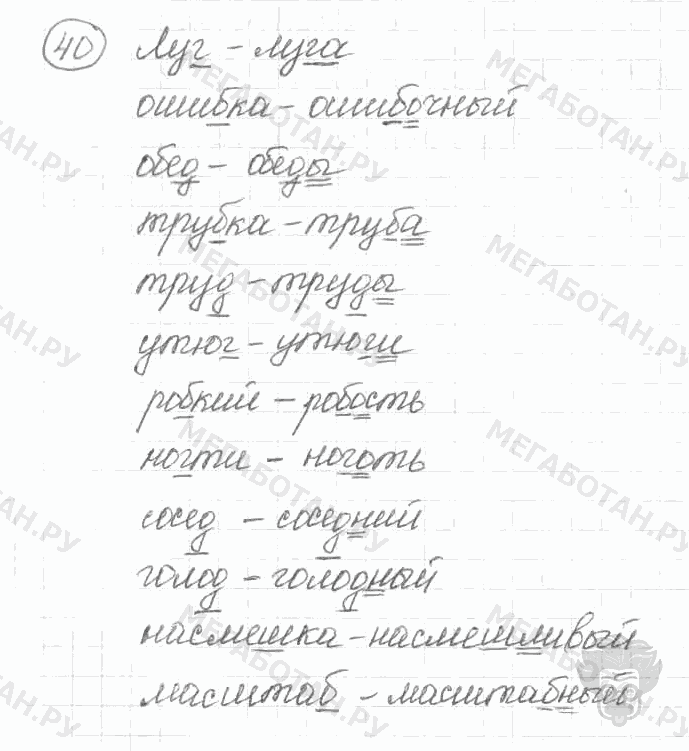 40 Луг - луга
ошибка - ошибочный
обед - обеды
трубка - труба
труд - труды
утюг - утюги
робкий - робость
ногти - ноготь
сосед - соседний
голод - голодный
насмешка - насмешливый
масштаб - масштабный
МЕГАБОТАН.РУ